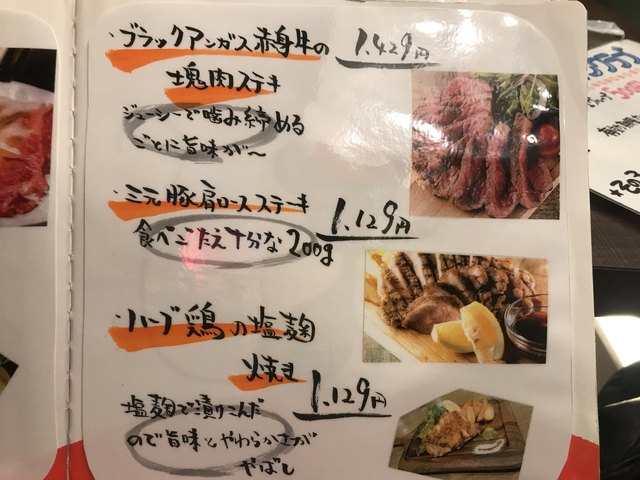 ブラックアンガス赤身牛の
1,429円
塊肉ステキ
ジューシーで噛み締める
ごとに旨味が〜
三元豚肩ロースステーキ
1,129円
食べごたえ十分な200g
ハーブ鶏の塩麹
焼き
1,129円
塩麹で漬りこんだ
ので旨味とやわらかさが
やばし